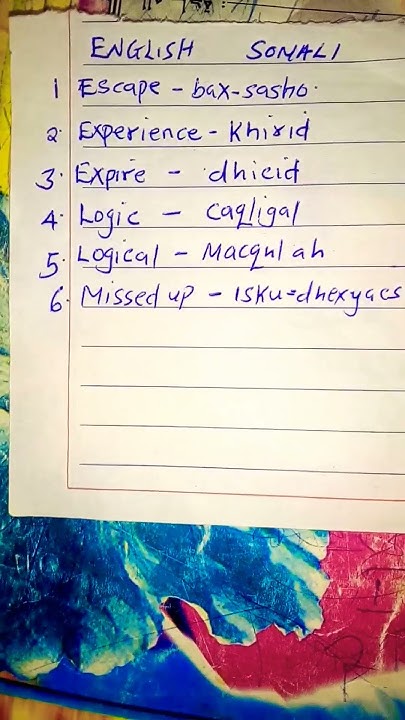 ENGLISH SOMALI
1 Escape - bax-sasho.
2. Experience - Khirid
3. Expire - dhicid
4. Logic - Caqligal
5. Logical - Macqulah
6. Missed up - Isku=dhexyacs